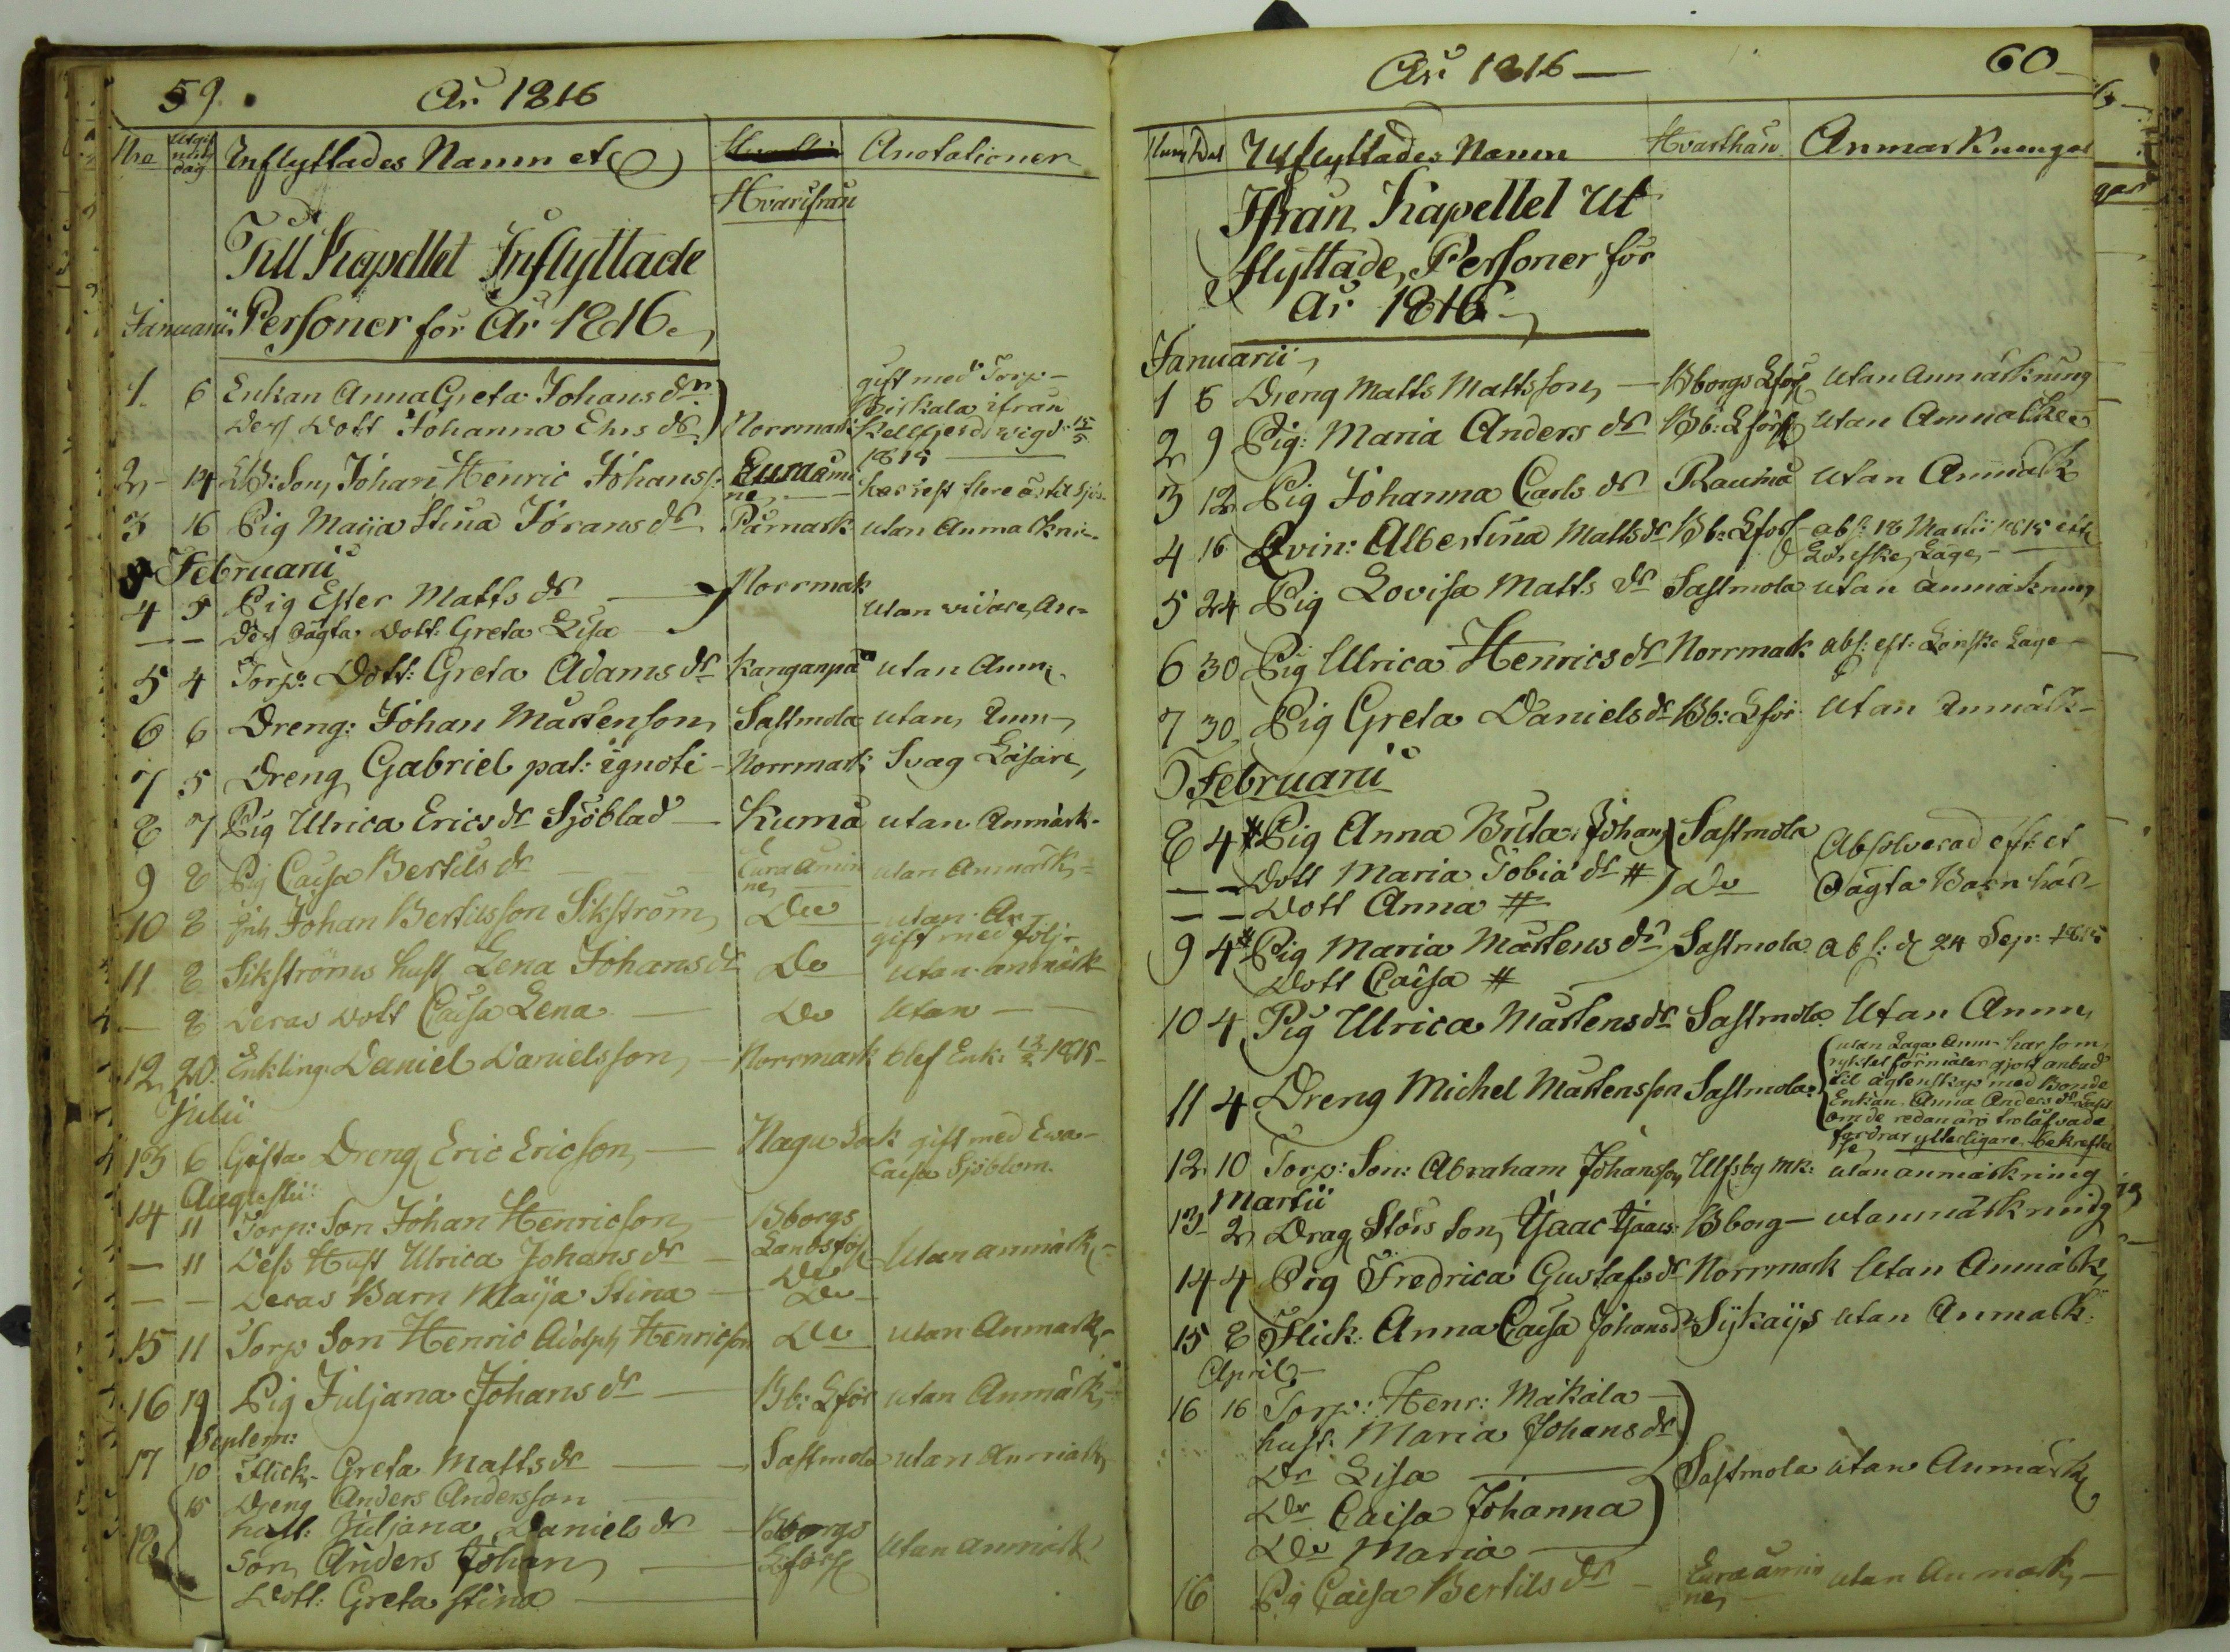 59. År 1816
Nro Utgifnings dag Inflyttades Namn etc Hvarifrån Anotationer
Till Kapellet Inflyttade
Januarii Personer för År 1816
1. 6 Enkan Anna Greta Johans dr
Dess Dott Johanna Ehrs dr Norrmark
gift med Torp
ifrån
wigd: 15/5
1815
2 14 Son Johan Henric Johans Euraåmi
ne
3 16 Pig Maija Stina Görans dr Påmark utan Anmärkni
Februarii
4 3 Pig Ester Matts dr Norrmak
— — Dess oägta Dott: Greta Lisa utan vidare An
5 4 Torp: Dott: Greta Adams dr Kanganpä utan Anm
6 6 Dreng: Johan Mårtenson Sastmola utan Anm
7 5 Dreng Gabriel pat: ignoti Norrmark Svag Läsare
8 7 Pig Ulrica Erics dr Sjöblad Kumå utan Anmärk
9 8 Pig Caisa Bertils dr Euraåmin
ne utan Anmärk
10 8 Inh Johan Bertilsson Sikström Do utan An
gift med följ
11 8 Sikströms hust Lena Johans dr Do utan anmärk
— 8 Deras Dott Caisa Lena Do Utan
12 20 Enkling: Daniel Danielsson Norrmark blef Enk: 1815
Julii
13 6 Gösta Dreng Eric Ericson Nagu gift med Ewa
Caisa Sjöblom
Augustii
14 11 Torp: Son Johan Henricson Bborgs
Landsför
— 11 Dess Hust Ulrica Johans dr Do Utan anmärk
— — Deras Barn Maija Stina Do
15 11 Torp Son Henric Adolph Henricson Do utan Anmärk
16 19 Pig Juljana Johans dr Bb: Lför utan Anmärk
Septem:
17 10 Flick Greta Matts dr Sastmola utan Anmärk
18 15 Dreng Anders Andersson
hust: Juljana Daniels dr Bborgs
Son Anders Johan Lförs Utan anmärk
Dott: Greta Stina
År 1816 60
Num Dat Utflyttades Namn Hvarthän Anmärkningar
Ifrån Kapellet Ut
flyttade Personer för
År 1816
Januarii
1 8 Dreng Matts Mattsson Bborgs Lförs Utan Anmärkning
2 9 Pig: Maria Anders dr Bb: Lförs Utan Anmärke
3 12 Pig Johanna Carls dr Raumå Utan Anmärk
4 16 Qvin: Albertina Matts dr Bb: Lförs abs: 18 Martii 1815
Lage
5 24 Pig Lovisa Matts dr Sastmola utan anmärkning
6 30 Pig Ulrica Henrics dr Norrmark abs: eft: Lage
7 30 Pig Greta Daniels dr Bb: Lför Utan Anmärk
Februarii
8 4 * Pig Anna Brita Johan Sastmola Absolverad eft: et
— — Dott Maria Tobiä dr # Do oägta Barn här
— — Dott Anna #
9 4 * Pig Maria Mårtens dr Sastmola abs: d 24 Sep: 1815
Dott Caisa #
10 4 Pig Ulrica Mårtens dr Sastmola Utan Anm
11 4 Dreng Michel Mårtensson Sastmola
utan Laga Anm har som
ryktet förmäler gjort anbud
til ägtenskap med Bonde
Enkan Anna Anders dr
om de redan äro trolåfvade
fordrar ytterligare bekräftel
se
12 10 Torp: Son: Abraham Johansson Ulfsby mk: utan anmärkning
Martii
13 2 Drag Stors Son Isaac Isaacs: Bborg utanmärkning
14 4 Pig Fredrica Gustafs dr Norrmark Utan Anmärk
15 8 Flick: Anna Caisa Johans dr Sykaijs utan Anmärk:
April
16 16 Torp: Henr: Mäkälä
hust: Maria Johans dr
Dr Lisa Sastmola utan Anmärk
Dr Caisa Johanna
Do Maria
16 Pig Caisa Bertils dr Euraåmin
ne utan Anmärk